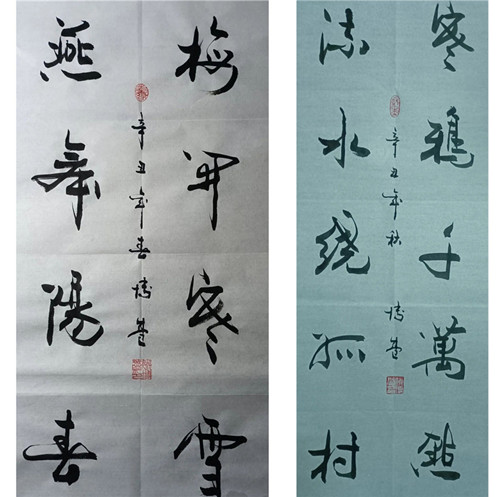 梅開寒雪
辛丑年春
燕舞陽春
寒鴉千萬點
辛丑年秋
流水繞孤村